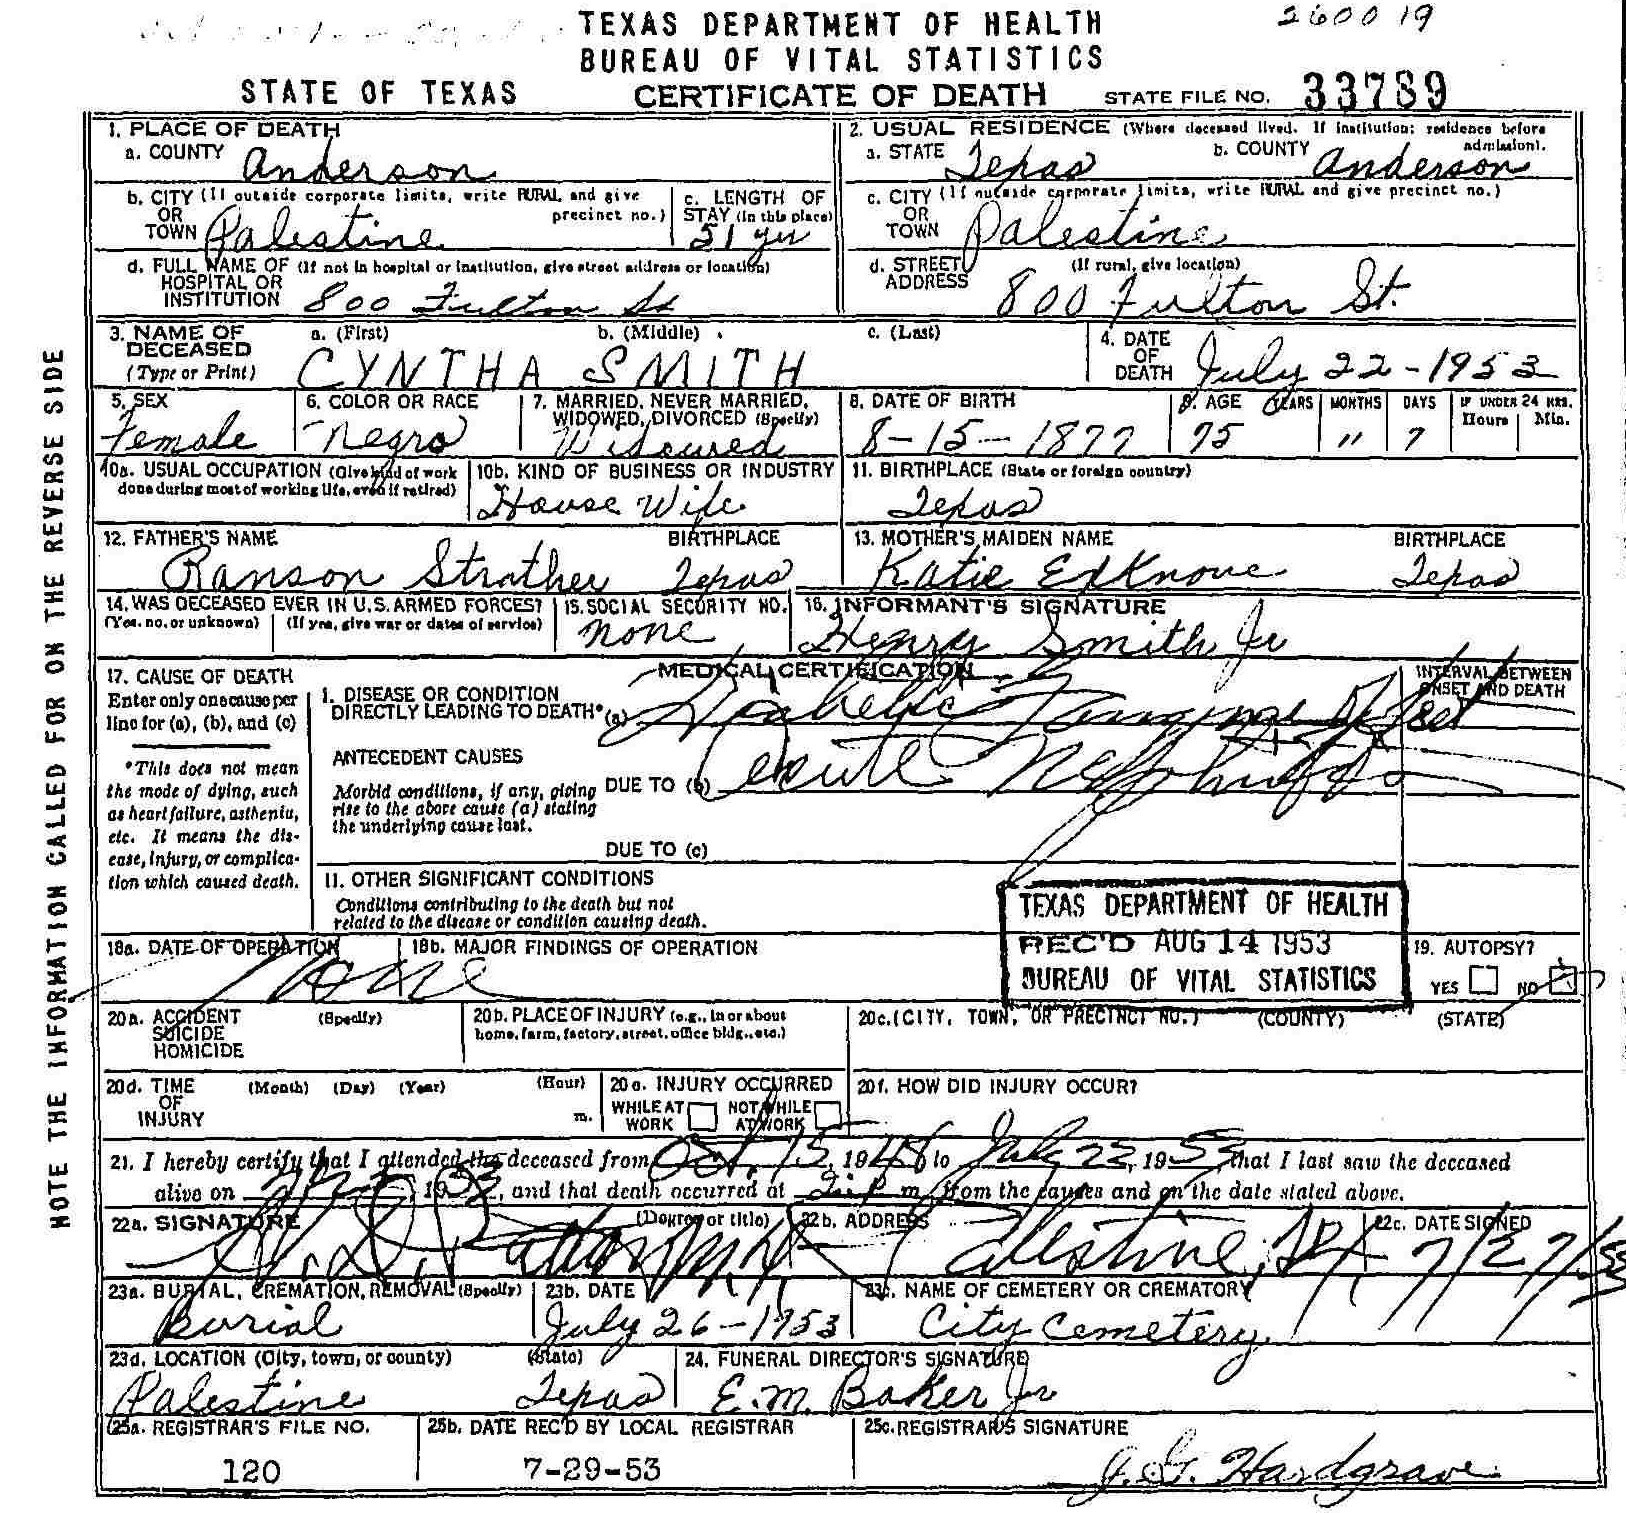 TEXAS DEPARTMENT OF HEALTH
BUREAU OF VITAL STATISTICS
260019
STATE OF TEXAS CERTIFICATE OF DEATH STATE FILE NO. 33789
NOTE THE INFORMATION CALLED FOR ON THE REVERSE SIDE
1. PLACE OF DEATH
a. COUNTY Anderson
2. USUAL RESIDENCE (Where deceased lived. If institution: residence before admission).
a. STATE Texas b. COUNTY Anderson
b. CITY (If outside corporate limits, write RURAL and give precinct no.)
OR
TOWN Palestine
c. LENGTH OF
STAY (in this place)
51 yrs
c. CITY (If outside corporate limits, write RURAL and give precinct no.)
OR
TOWN Palestine
d. FULL NAME OF (If not in hospital or institution, give street address or location)
HOSPITAL OR
INSTITUTION 800 Fulton St
d. STREET (If rural, give location)
ADDRESS 800 Fulton St.
3. NAME OF a. (First) b. (Middle) c. (Last)
DECEASED
(Type or Print) CYNTHA SMITH
4. DATE
OF
DEATH July 22-1953
5. SEX
Female
6. COLOR OR RACE
Negro
7. MARRIED, NEVER MARRIED,
WIDOWED, DIVORCED (Specify)
Widowed
8. DATE OF BIRTH
8-15-1877
9. AGE YEARS MONTHS DAYS IF UNDER 24 HRS.
Hours Min.
75 11 7
10a. USUAL OCCUPATION (Give kind of work
done during most of working life, even if retired)
10b. KIND OF BUSINESS OR INDUSTRY
House Wife
11. BIRTHPLACE (State or foreign country)
Texas
12. FATHER'S NAME BIRTHPLACE
Ranson Strather Texas
13. MOTHER'S MAIDEN NAME BIRTHPLACE
Katie Texas
14. WAS DECEASED EVER IN U.S. ARMED FORCES?
(Yes, no, or unknown) (If yes, give war or dates of service)
15. SOCIAL SECURITY NO.
none
16. INFORMANT'S SIGNATURE
Henry Smith Jr
MEDICAL CERTIFICATION
17. CAUSE OF DEATH
Enter only one cause per
line for (a), (b), and (c)
*This does not mean
the mode of dying, such
as heart failure, asthenia,
etc. It means the dis-
ease, injury, or complica-
tion which caused death.
I. DISEASE OR CONDITION
DIRECTLY LEADING TO DEATH* (a) Diabetic Feet
INTERVAL BETWEEN
ONSET AND DEATH
ANTECEDENT CAUSES
Morbid conditions, if any, giving
rise to the above cause (a) stating
the underlying cause last.
DUE TO (b) Acute Nephritis
DUE TO (c)
II. OTHER SIGNIFICANT CONDITIONS
Conditions contributing to the death but not
related to the disease or condition causing death.
TEXAS DEPARTMENT OF HEALTH
REC'D AUG 14 1953
BUREAU OF VITAL STATISTICS
18a. DATE OF OPERATION 18b. MAJOR FINDINGS OF OPERATION
None
19. AUTOPSY?
YES NO
20a. ACCIDENT (Specify)
SUICIDE
HOMICIDE
20b. PLACE OF INJURY (e.g., in or about
home, farm, factory, street, office bldg., etc.)
20c. (CITY, TOWN, OR PRECINCT NO.) (COUNTY) (STATE)
20d. TIME (Month) (Day) (Year) (Hour)
OF
INJURY m.
20e. INJURY OCCURRED
WHILE AT WORK NOT WHILE AT WORK
20f. HOW DID INJURY OCCUR?
21. I hereby certify that I attended the deceased from Oct. 15, 1948 to July 22, 1953, that I last saw the deceased
alive on 1953, and that death occurred at m., from the causes and on the date stated above.
22a. SIGNATURE (Degree or title)
22b. ADDRESS
Palestine, Tex
22c. DATE SIGNED
7/27/53
23a. BURIAL, CREMATION, REMOVAL (Specify)
Burial
23b. DATE
July 26-1953
23c. NAME OF CEMETERY OR CREMATORY
City Cemetery
23d. LOCATION (City, town, or county) (State)
Palestine Texas
24. FUNERAL DIRECTOR'S SIGNATURE
E.M. Baker Jr
25a. REGISTRAR'S FILE NO.
120
25b. DATE REC'D BY LOCAL REGISTRAR
7-29-53
25c. REGISTRAR'S SIGNATURE
J. G. Hardgrave